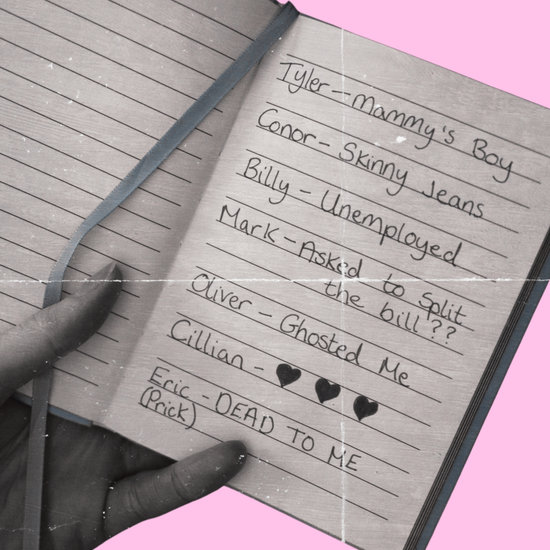 Tyler - Mammy's Boy
Conor - Skinny Jeans
Billy - Unemployed
Mark - Asked to split
the bill ??
Oliver - Ghosted Me
Cillian - ♥ ♥ ♥
Eric - DEAD TO ME
(Prick)